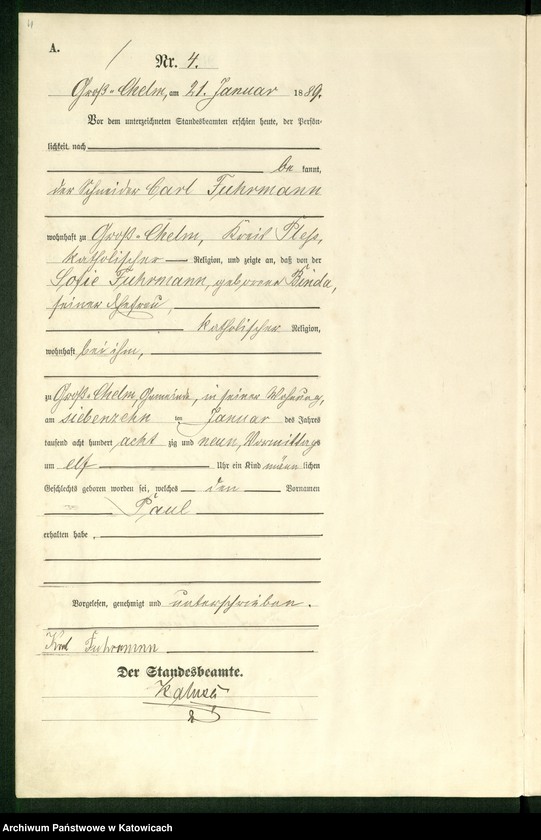 4
A.
Nr. 4.
Groß-Chelm, am 21. Januar 1889.
Vor dem unterzeichneten Standesbeamten erschien heute, der Persön-
lichkeit nach
be kannt,
der Schneider Carl Fuhrmann
wohnhaft zu Groß-Chelm, Kreis Pleß,
katholischer Religion, und zeigte an, daß von der
Sofie Fuhrmann, geborene Binda,
seiner Ehefrau,
katholischer Religion,
wohnhaft bei ihm,
zu Groß-Chelm, Gemeinde, in seiner Wohnung,
am siebenzehn ten Januar des Jahres
tausend acht hundert acht zig und neun, Vormittags
um elf Uhr ein Kind männ lichen
Geschlechts geboren worden sei, welches den Vornamen
Paul
erhalten habe.
Vorgelesen, genehmigt und unterschrieben.
Karl Fuhrmann
Der Standesbeamte.
Archiwum Państwowe w Katowicach